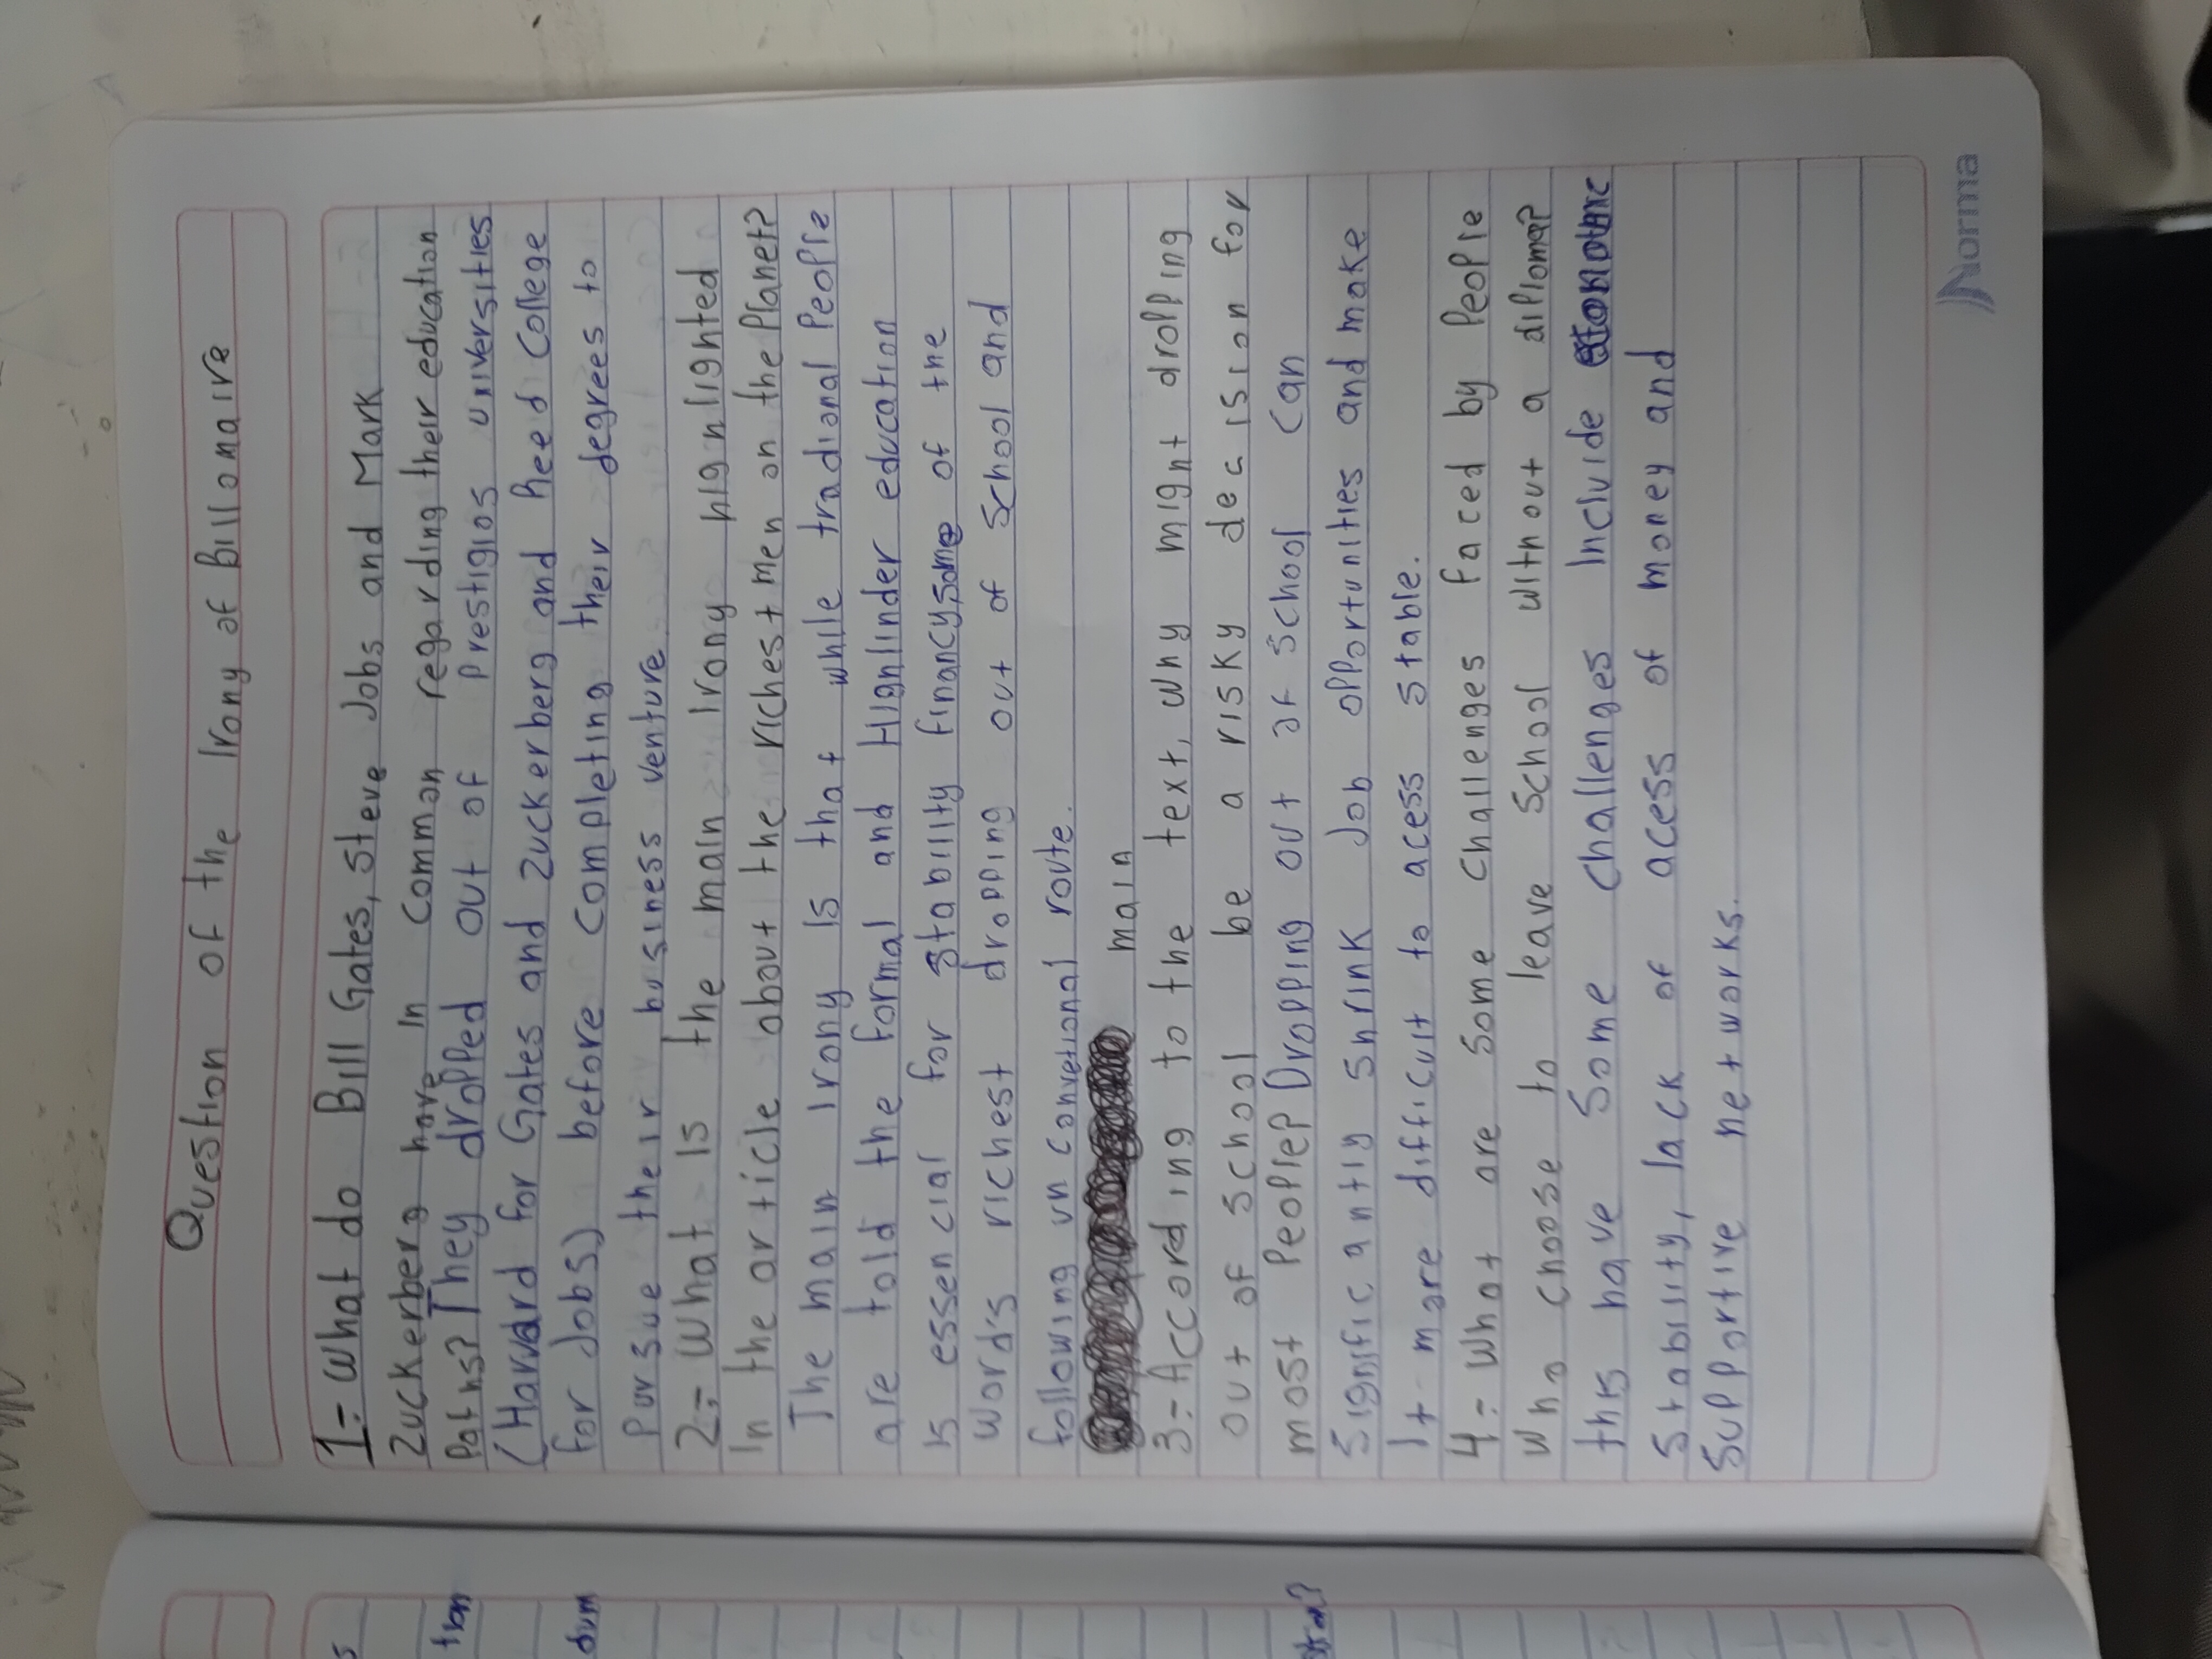 Question of the Irony of Billomaire
1=What do Bill Gates, Steve Jobs and Mark
Zuckerberg have in common regarding their education
Paths? They dropped out of prestigios universities
(Harvard for Gates and Zuckerberg and Reed College
for Jobs) before completing their degrees to
pursue their business venture
2=What is the main irony highlighted
In the article about the richest men on the Planet?
The main irony is that while tradional People
are told the formal and Highlinder education
is essencial for stability financy, some of the
words richest dropping out of School and
following un convetional route.
main
3=According to the text, why might dropping
out of school be a risky decision for
most People? Dropping out of school can
Significantly shrink Job opportunities and make
It more difficult to acess stable.
4=What are some challenges faced by People
Who choose to leave School without a diploma?
this have Some challenges Include
Stability, lack of acess of money and
Supportive networks.
Norma
tion
dum